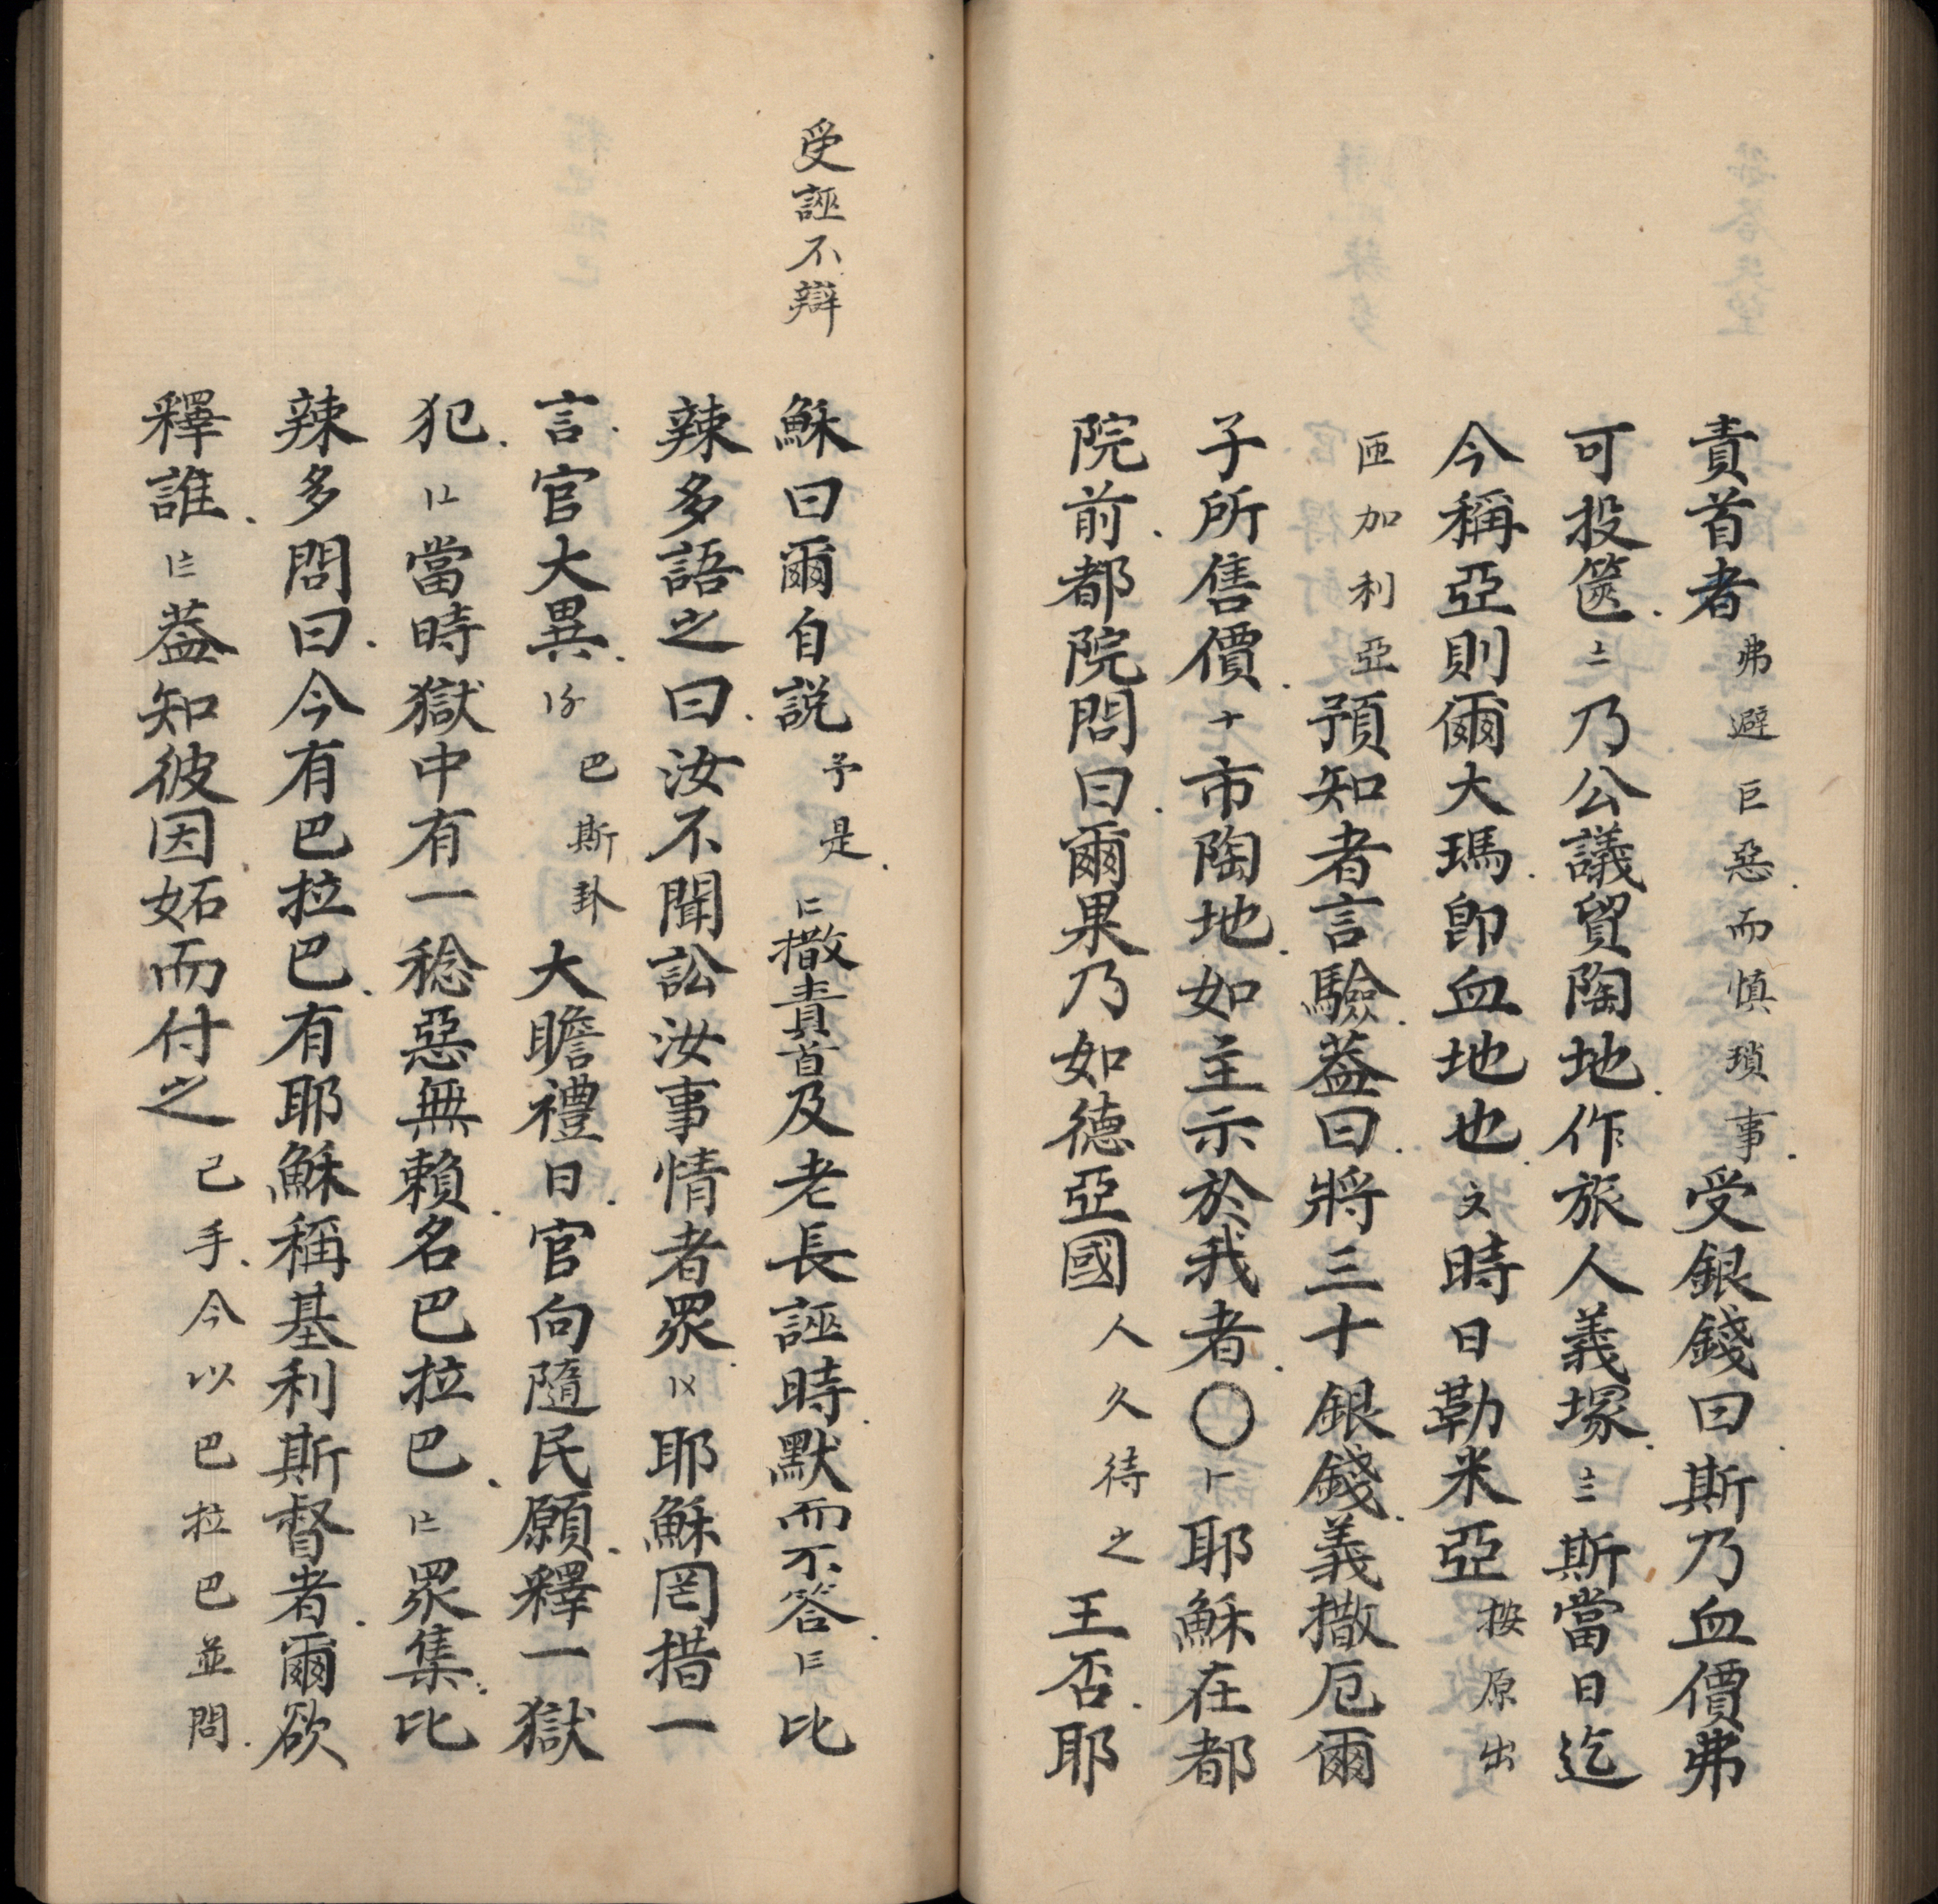 責首者弗避巨惡而慎瑣事受銀錢曰斯乃血價弗
可投篋〦乃公議貿陶地作旅人義塚〧斯當日迄
今稱亞則爾大瑪即血地也〩時日勒米亞按原出
匝加利亞預知者言驗蓋曰將三十銀錢義撒厄爾
子所售價十市陶地如主示於我者〇耶穌在都
院前都院問曰爾果乃如德亞國人久待之王否耶
受誣不辯
穌曰爾自説予是撒責首及老長誣時默而不答比
辣多語之曰汝不聞訟汝事情者眾耶穌罔措一
言官大異巴斯卦大瞻禮日官向隨民願釋一獄
犯當時獄中有一稔惡無賴名巴拉巴眾集比
辣多問曰今有巴拉巴有耶穌稱基利斯督者爾欲
釋誰蓋知彼因妬而付之己手今以巴拉巴並問